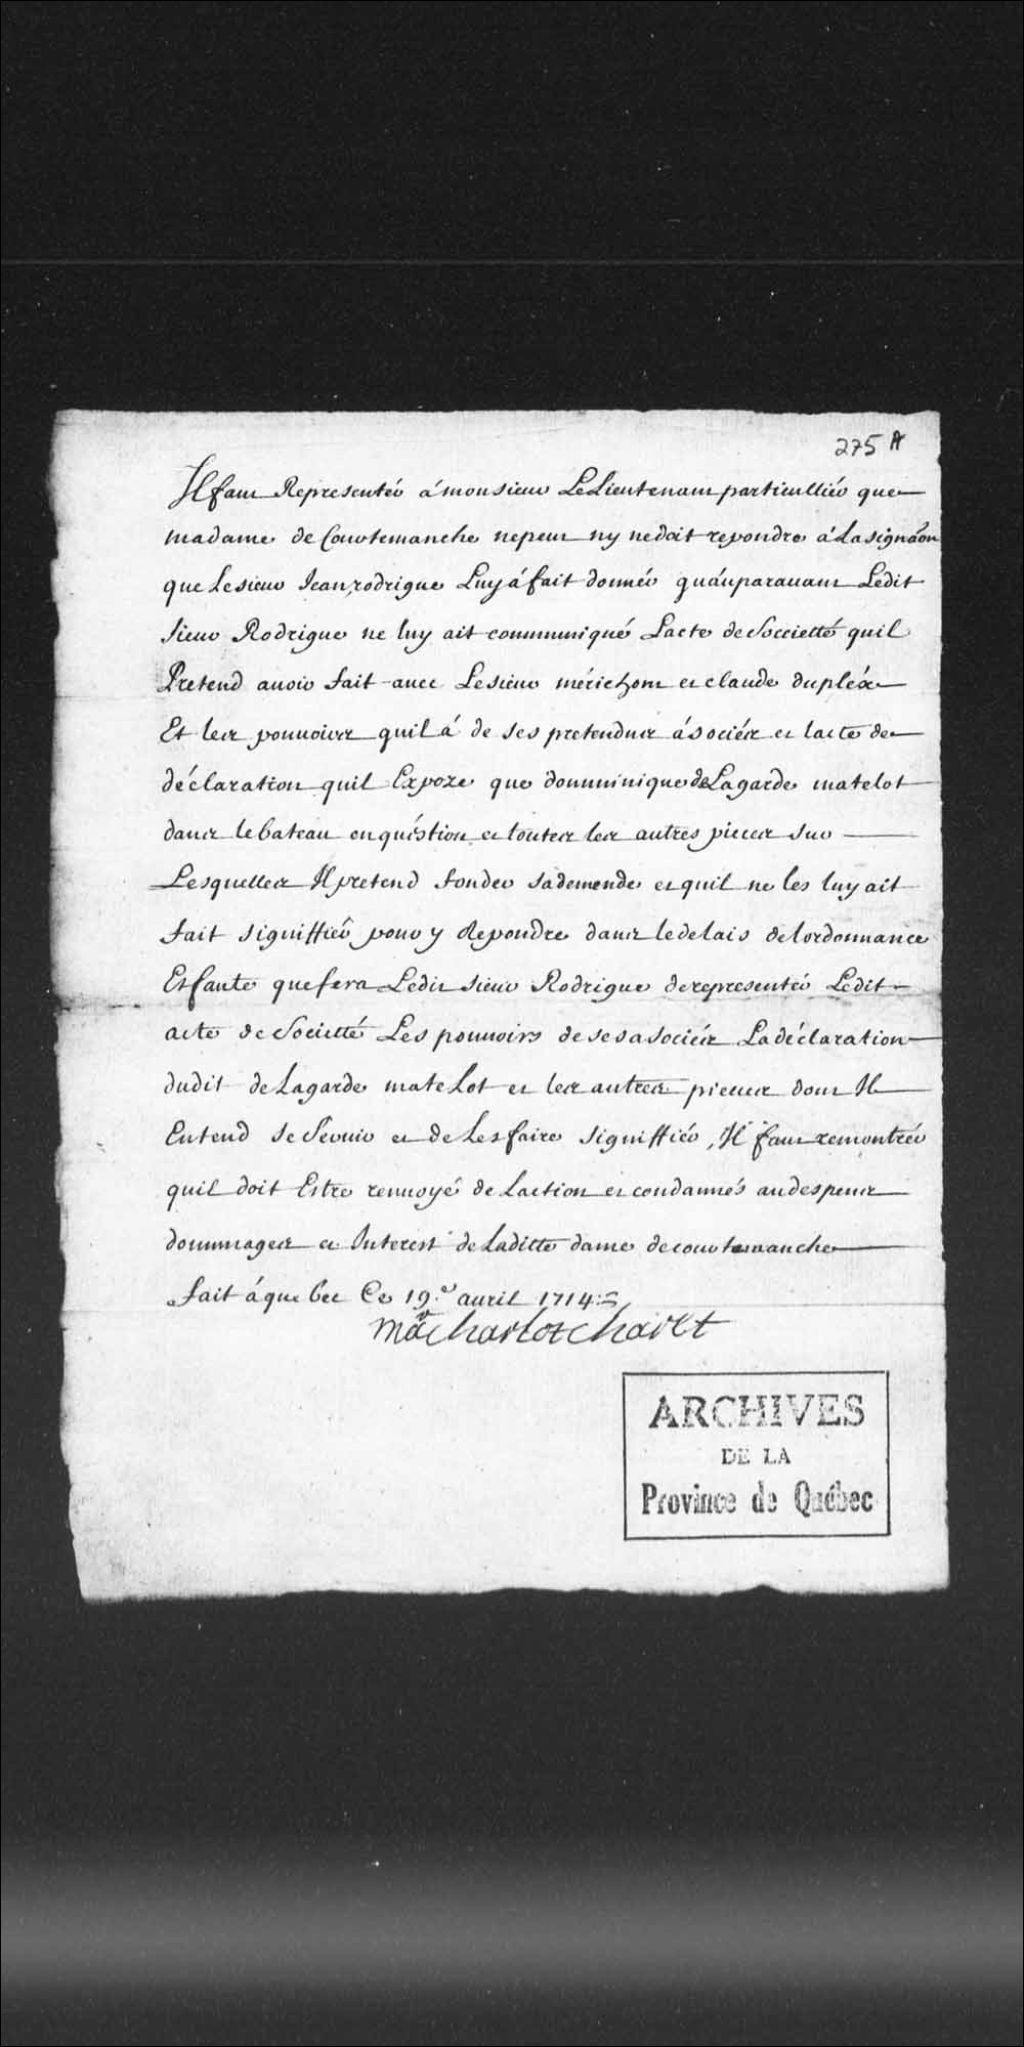 275 A
Il faut Representér á monsieur Le Lieutenant particulliér que
madame de Courtemanche nepeut ny nedoit repondre á Lasignáon
que Lesieur Jean rodrigue Luy á fait donnér quáuparauant Ledit
sieur Rodrigue ne luy ait communiqué Lacte de Soccietté quil
Pretend auoir fait auec Lesieur mérichon et claude dupléx
Et les pouuoirs quil á de ses pretendus ásociés et lacte de
déclaration quil Expoze que domminique de Lagarde matelot
dans le bateau en quéstion et toutes les autres pieces sur
Lesquelles Il pretend fonder sademende et quil ne les luy ait
fait signiffiér pour y Repondre dans ledelais delordonnance
Et faute que fera Ledit sieur Rodrigue derepresentér Ledit
acte de Socictté Les pouuoirs de ses asociés La déclaration
dudit de Lagarde mate Lot et les autres pieces dont Il
Entend se Seruir et de Les faire signiffiér, Il faut remontrér
quil doit Estre renuoyé de Laction et condamnés audespens
dommages et Interest de Laditte dame decourtemanche
fait á que bec Ce 19.e auril 1714
charlot charet
ARCHIVES
DE LA
Province de Québec